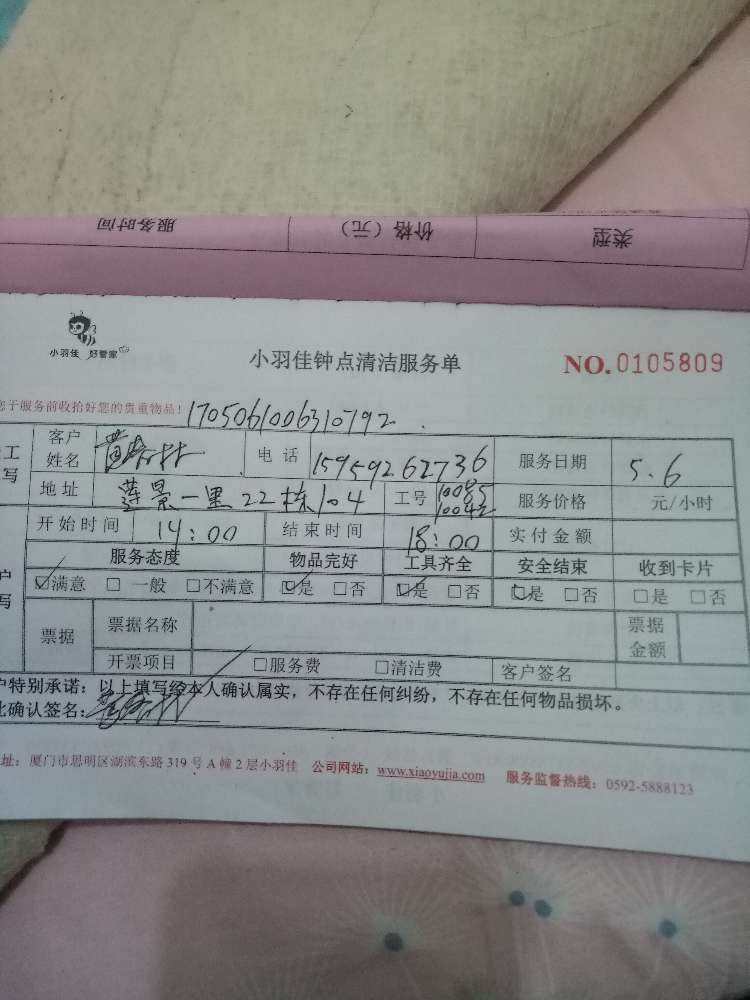 类型 价格（元） 服务时间
小羽佳 好管家
小羽佳钟点清洁服务单 NO.0105809
您于服务前收拾好您的贵重物品！ 1705061006310792
工 客户姓名 电话 15959262736 服务日期 5.6
写 地址 莲景一里22栋104 工号 10085 10042 服务价格 元/小时
开始时间 14:00 结束时间 18:00 实付金额
服务态度 物品完好 工具齐全 安全结束 收到卡片
户 ☑满意 □一般 □不满意 ☑是 □否 ☑是 □否 ☑是 □否 □是 □否
写 票据 票据名称 票据金额
开票项目 □服务费 □清洁费 客户签名
户特别承诺：以上填写经本人确认属实，不存在任何纠纷，不存在任何物品损坏。
此确认签名：
址：厦门市思明区湖滨东路319号A幢2层小羽佳 公司网站：www.xiaoyujia.com 服务监督热线：0592-5888123